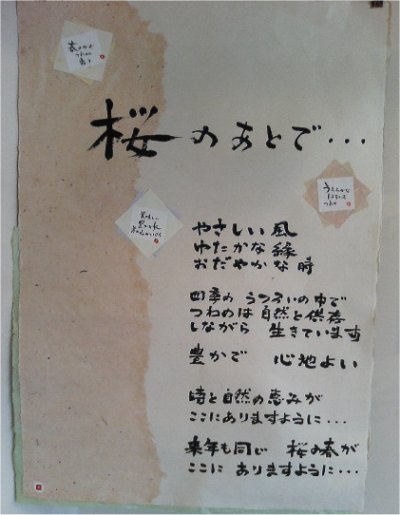 桜のあとで・・・
うららかな
やさしい風
ゆたかな緑
おだやかな時
四季の うつろいの中で
つわのは自然と保存
しながら 生きています
豊かで 心地よい
時と自然の恵みが
ここにありますように・・・
来年も同じ 桜の春が
ここに ありますように・・・